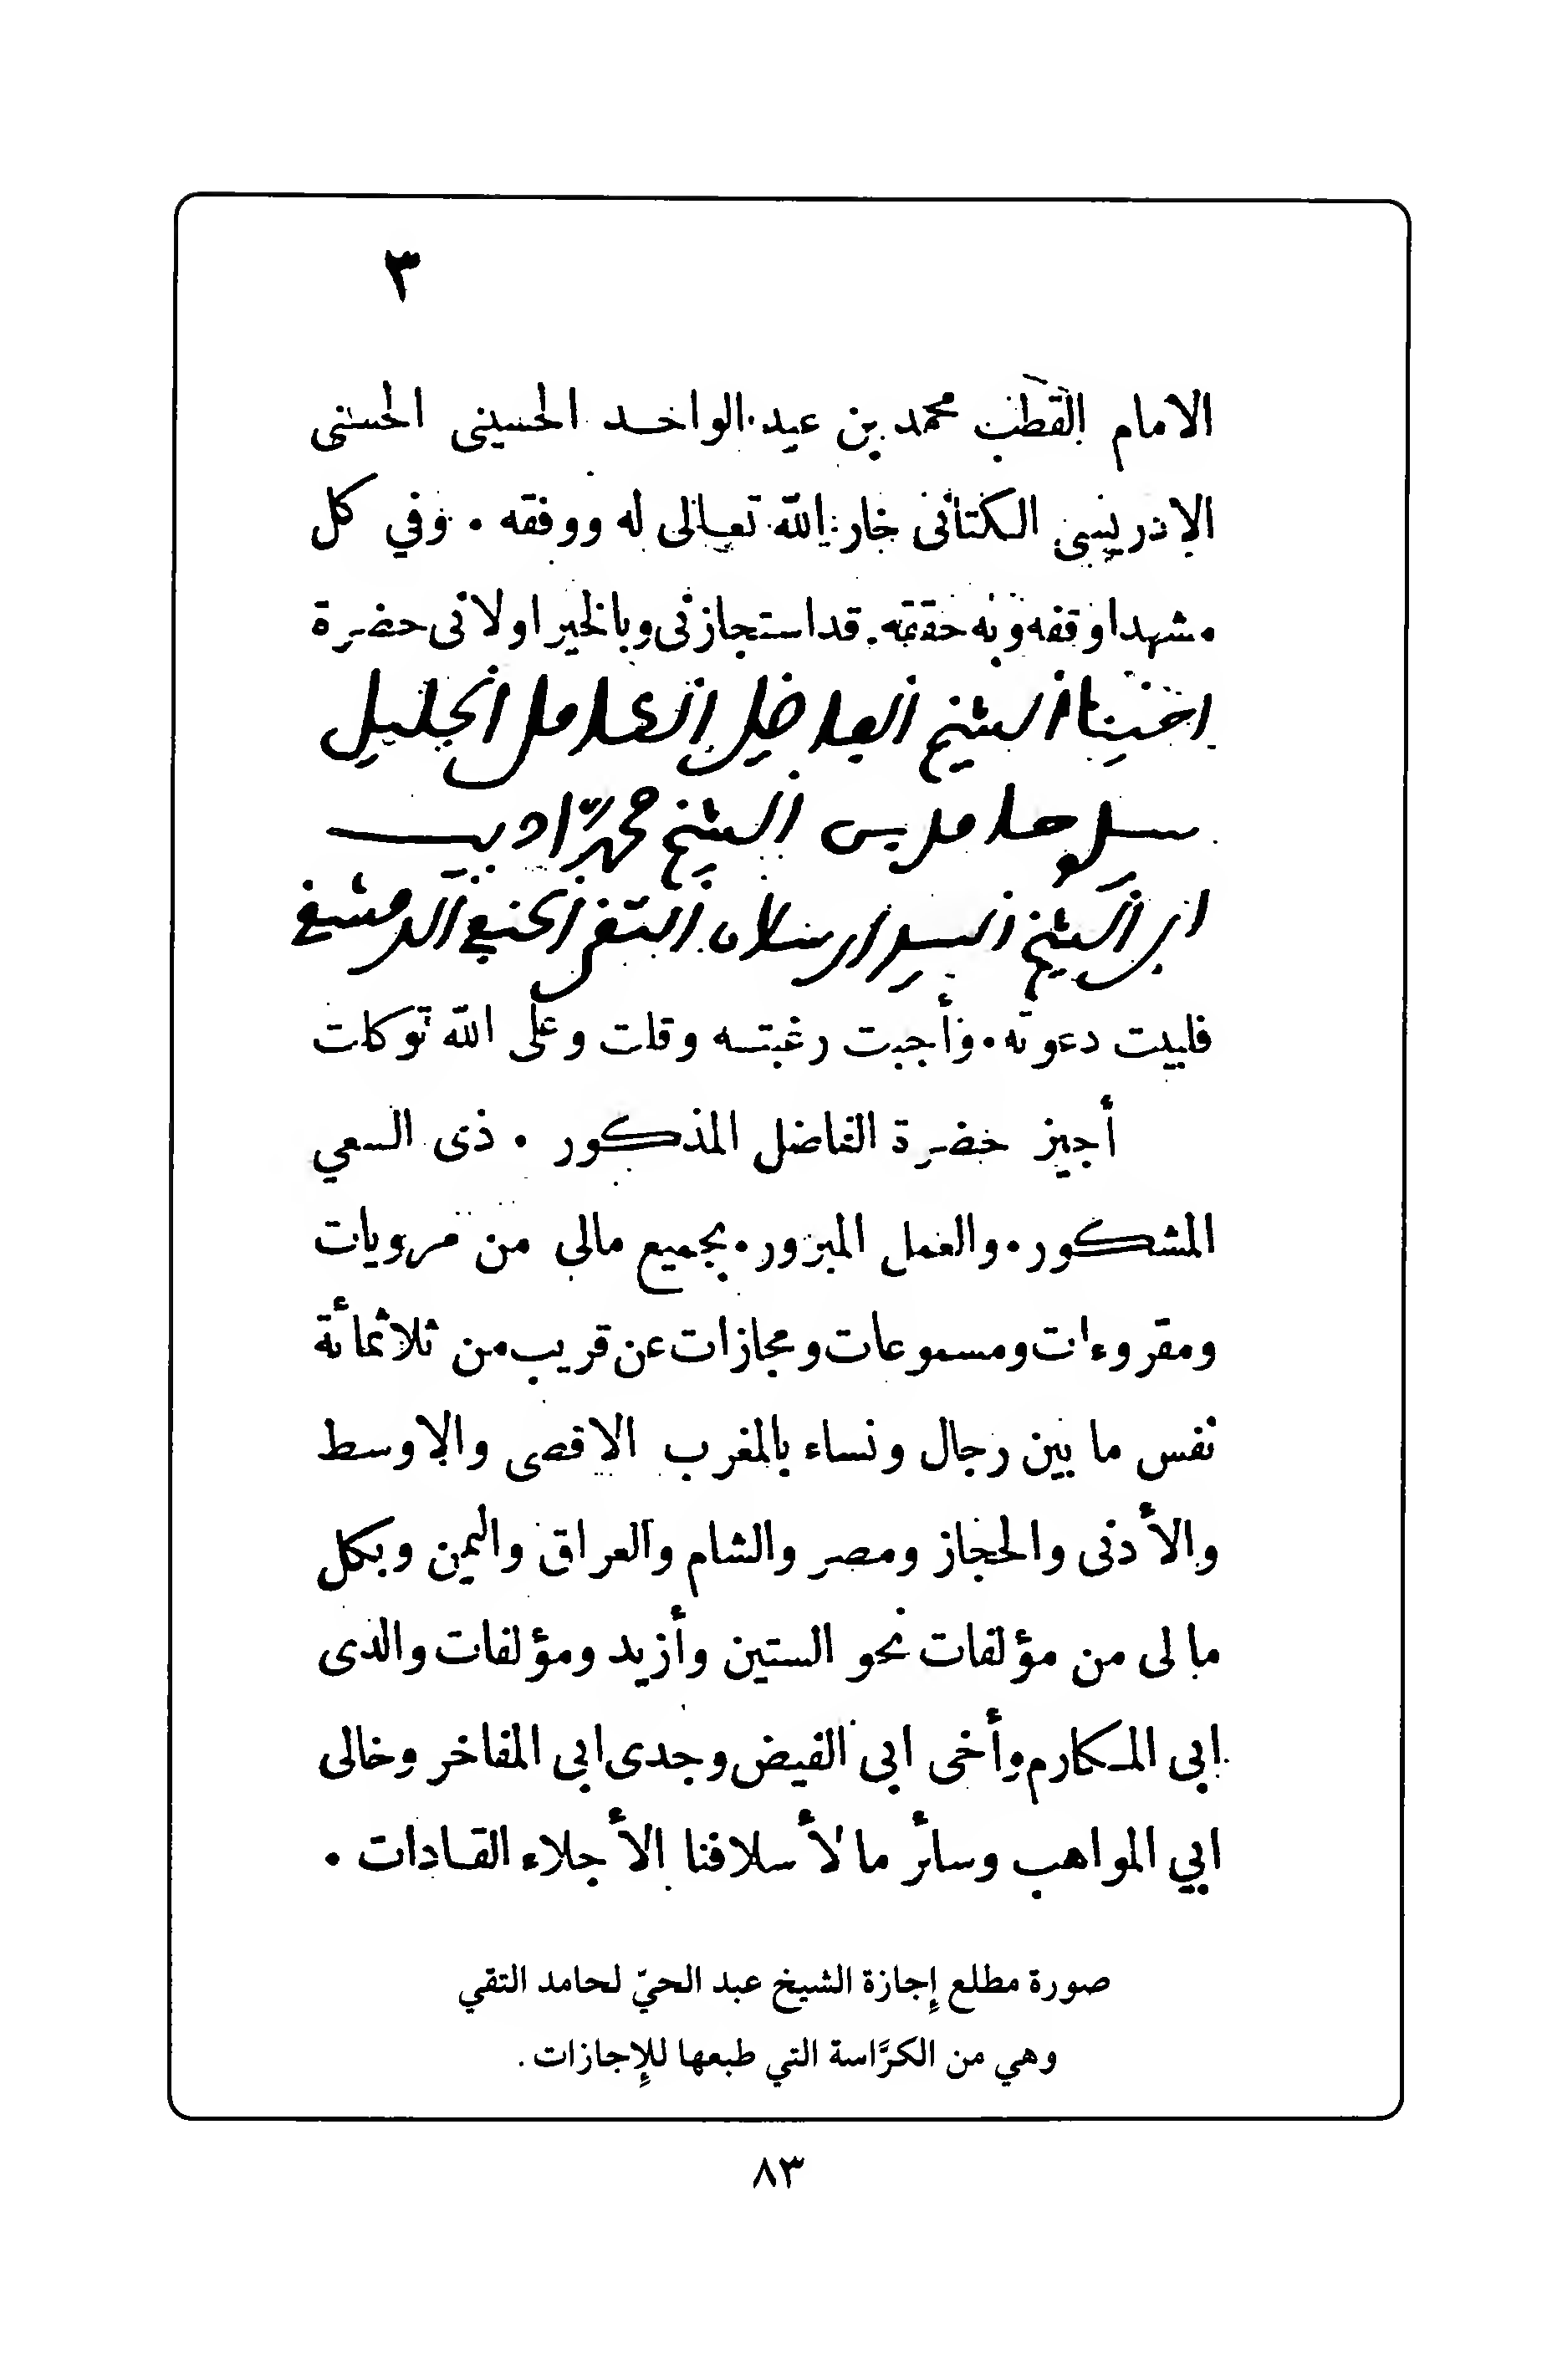 ٣
الامام القطب محمد بن عبد الواحد الحسينى الحسنى
الإدريسى الكتانى خار الله تعالى له ووفقه • وفي كل
مشهد اوقفه وبه حققه. قد استجازنى وبالخير اولانى حضرة
اخينا الشيخ الفاضل الكامل الجليل
سيدي حامد بن الشيخ محمد اديب
ابن الشيخ السيد ارسلان التقي الحنفي الدمشقي
فلبيت دعوته • وأجبت رغبتــه وقلت وعلى الله توكلت
أجيز حضرة الفاضل المذكور • ذى السعي
المشكور • والعمل المبرور • بجميع مالى من مرويات
ومقروءات ومسموعات ومجازات عن قريب من ثلاثمائة
نفس ما بين رجال ونساء بالمغرب الاقصى والاوسط
والأدنى والحجاز ومصر والشام والعراق واليمن وبكل
مالى من مؤلفات نحو الستين وأزيد ومؤلفات والدى
ابى المكارم وأخى ابى الفيض وجدى ابى المفاخر وخالى
ابي المواهب وسائر مالأسلافنا الأجلاء القادات •
صورة مطلع إجازة الشيخ عبد الحيّ لحامد التقي
وهي من الكرَّاسة التي طبعها للإجازات .
٨٣